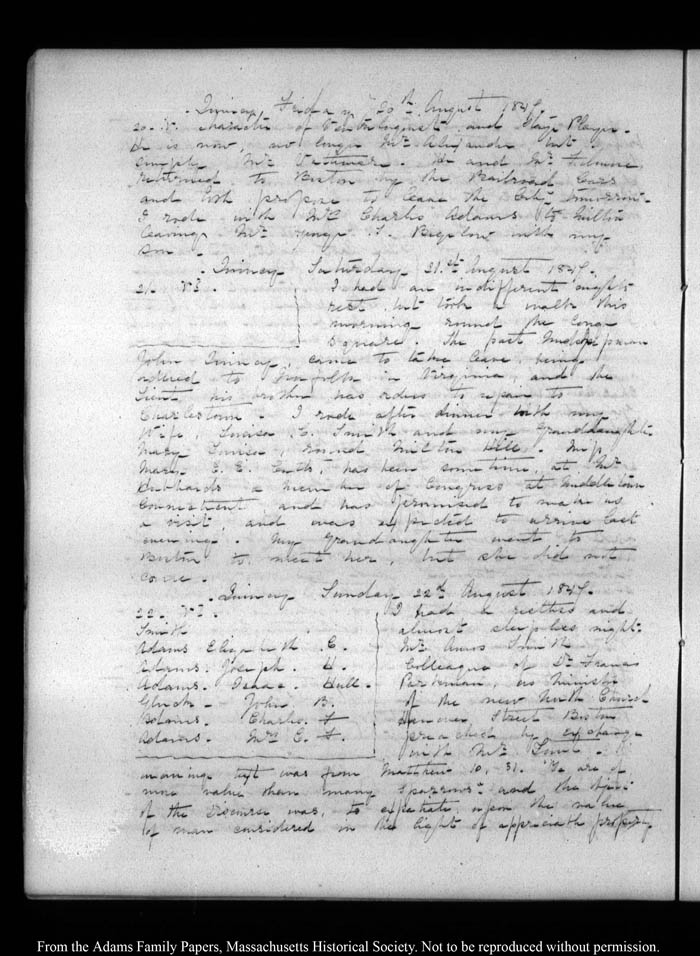 Quincy Friday 20th August 1847.
20. V. character of Ventriloquist and Stage Player.
He is now, no longer Mr Alexander but
simply Mr Vattemare. He and Mr
returned to Boston by the Railroad Cars
and both propose to leave the City tomorrow.
I rode with Mrs Charles Adams to Milton
leaving Mr George T. Bigelow with my
son.
Quincy Saturday 21st August 1847.
21. VI. I had an indifferent night's
rest, but took a walk this
morning round the long
square. The past Midshipman
John Quincy, came to take leave, being
ordered to Norfolk in Virginia, and the
Lieut his brother has orders to repair to
Charlestown. I rode after dinner with my
Wife, Louisa C. Smith and my Granddaughter
Mary Louisa, round Milton Hill. Miss
Mary E. E. Cutts, has been some time, at Mr
Hubbards a member of Congress at Middletown
Connecticut, and has promised to make us
a visit, and was expected to arrive last
evening. My Grandaughter went to
Boston to meet her, but she did not
come.
Quincy Sunday 22d August 1847.
22. VI. I had a restless and
Smith almost sleepless night.
Adams Elizabeth C. Mr Amos Smith
Adams. Joseph. H. Colleague of Dr Francis
Adams. Isaac. Hull. Parkman, as Minister
John B. of the new North Church
Adams. Charles F Hanover Street Boston
Adams. Mrs C. F. preached by exchange
with Mr Lunt.
morning text was from Matthew 10, 31. Ye are of
more value than many Sparrows and the object
of the discourse was, to expatiate upon the value
of man considered in the light of property.
From the Adams Family Papers, Massachusetts Historical Society. Not to be reproduced without permission.